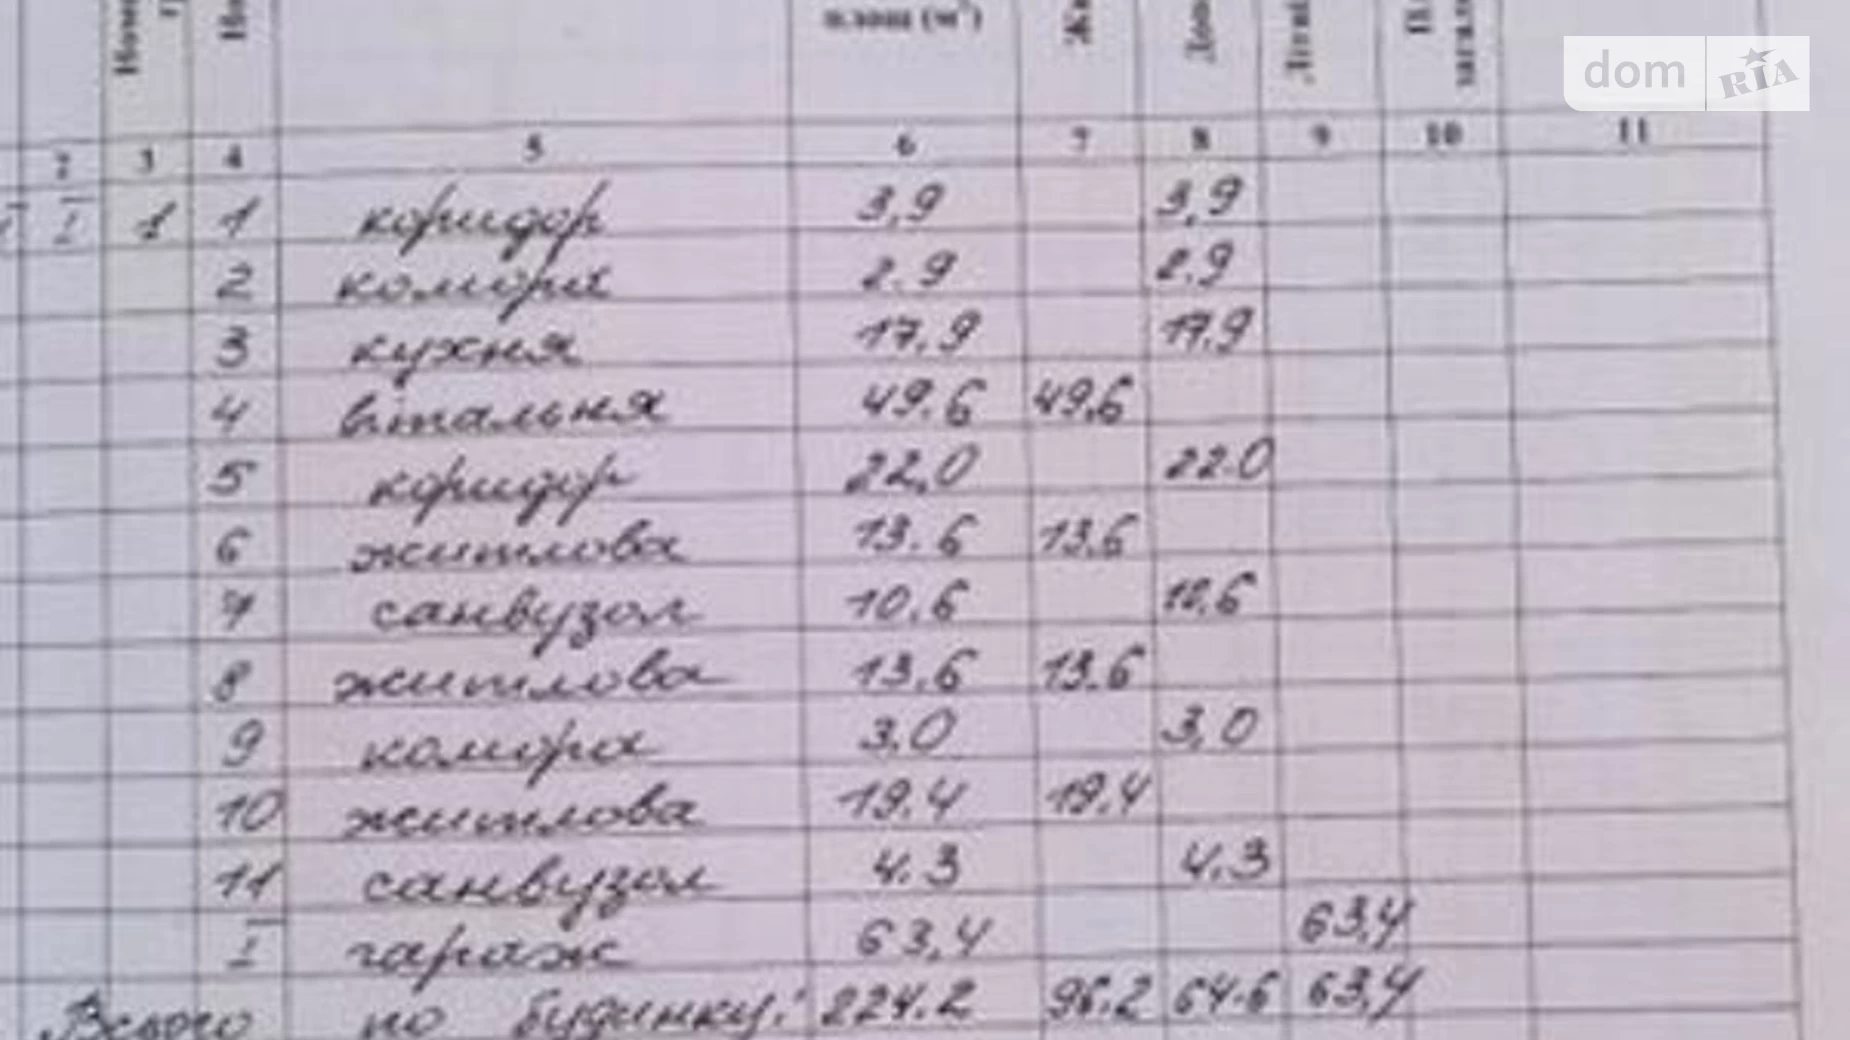 площ (м²)
dom RIA
2 3 4 5 6 7 8 9 10 11
I 1 1 коридор 3,9 3,9
2 комора 2.9 2.9
3 кухня 17,9 17.9
4 вітальня 49.6 49,6
5 коридор 22,0 22.0
6 житлова 13.6 13.6
7 санвузол 10.6 10.6
8 житлова 13.6 13.6
9 комора 3.0 3,0
10 житлова 19.4 19.4
11 санвузол 4.3 4.3
I гараж 63,4 63,4
Всього по будинку: 224.2 96.2 64.6 63,4